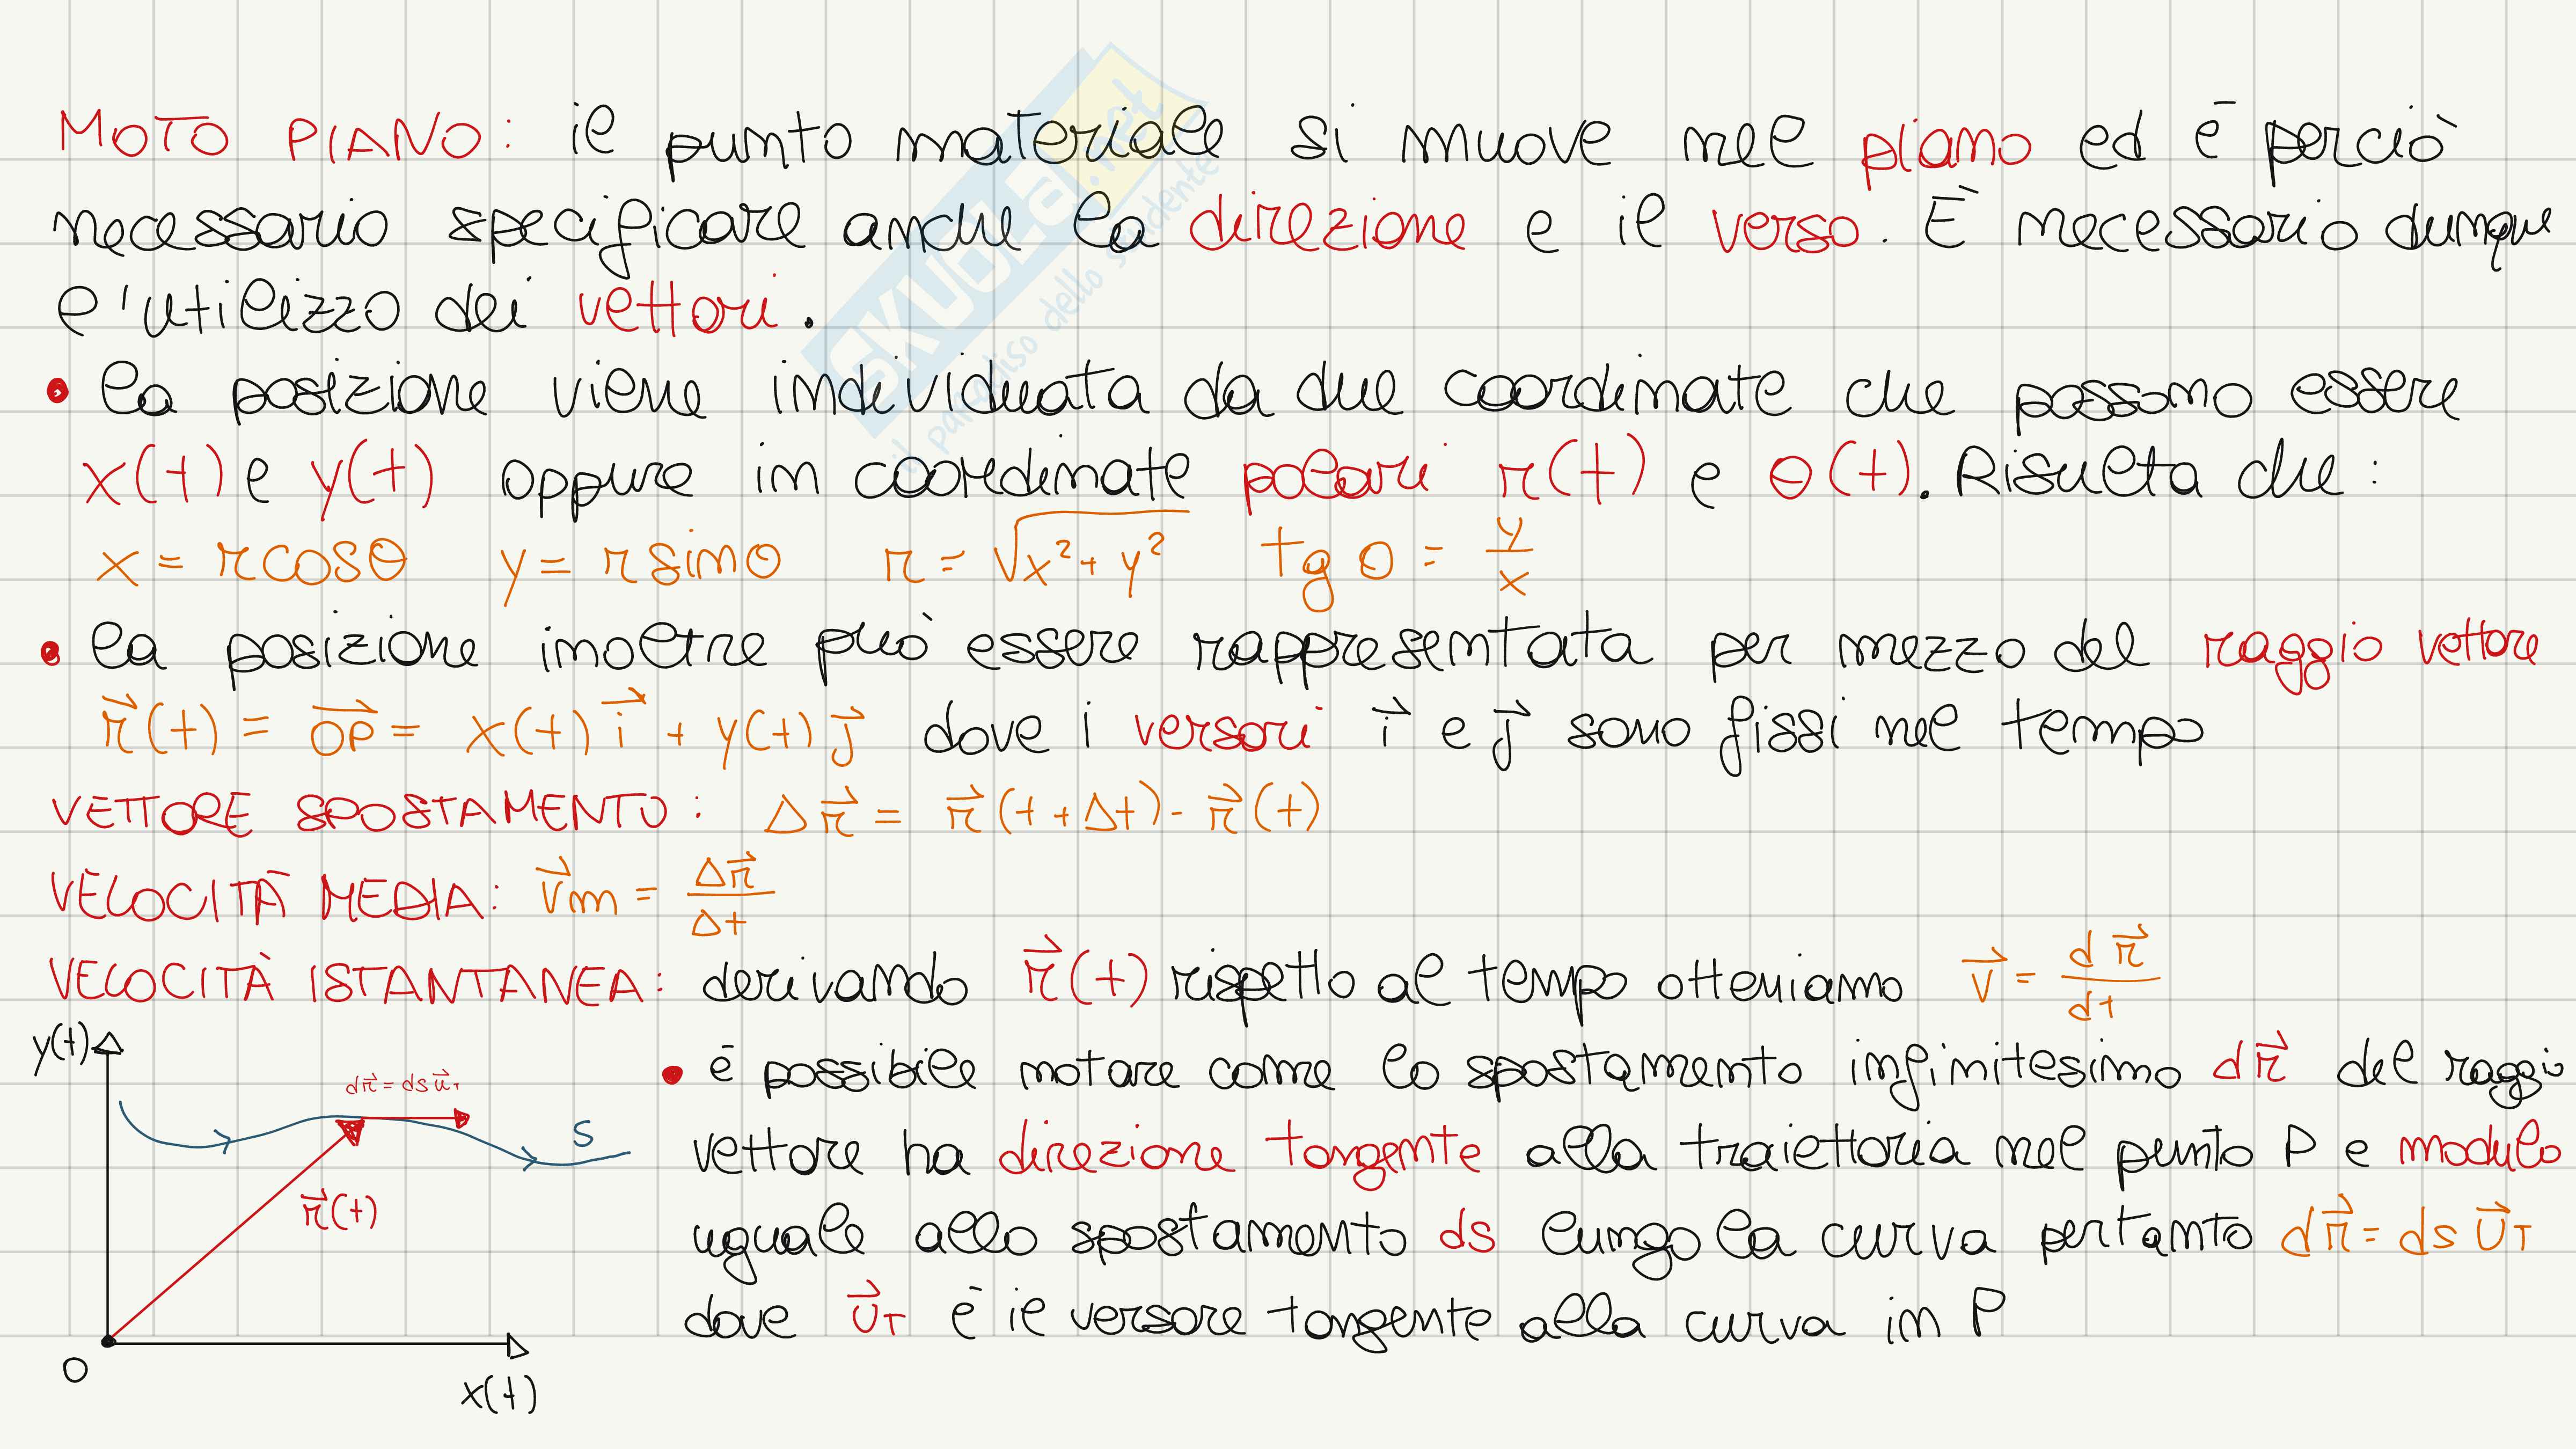 MOTO PIANO: il punto materiale si muove nel piano ed è perciò
necessario specificare anche la direzione e il verso. È necessario dunque
l'utilizzo dei vettori.
• la posizione viene individuata da due coordinate che possono essere
x(t) e y(t) oppure in coordinate polari r(t) e θ(t). Risulta che:
x = r cosθ y = r sinθ r = √x²+y² tg θ = y/x
• la posizione inoltre può essere rappresentata per mezzo del raggio vettore
r⃗(t) = OP⃗ = x(t) i⃗ + y(t) j⃗ dove i versori i⃗ e j⃗ sono fissi nel tempo
VETTORE SPOSTAMENTO: Δr⃗ = r⃗(t+Δt) - r⃗(t)
VELOCITÀ MEDIA: v⃗m = Δr⃗/Δt
VELOCITÀ ISTANTANEA: derivando r⃗(t) rispetto al tempo otteniamo v⃗ = dr⃗/dt
• è possibile notare come lo spostamento infinitesimo dr⃗ del raggio
vettore ha direzione tangente alla traiettoria nel punto P e modulo
uguale allo spostamento ds lungo la curva pertanto dr⃗ = ds u⃗T
dove u⃗T è il versore tangente alla curva in P
y(t)
dr⃗ = ds u⃗T
S
r⃗(t)
O
x(t)
SKUOLA.net
il paradiso dello studente